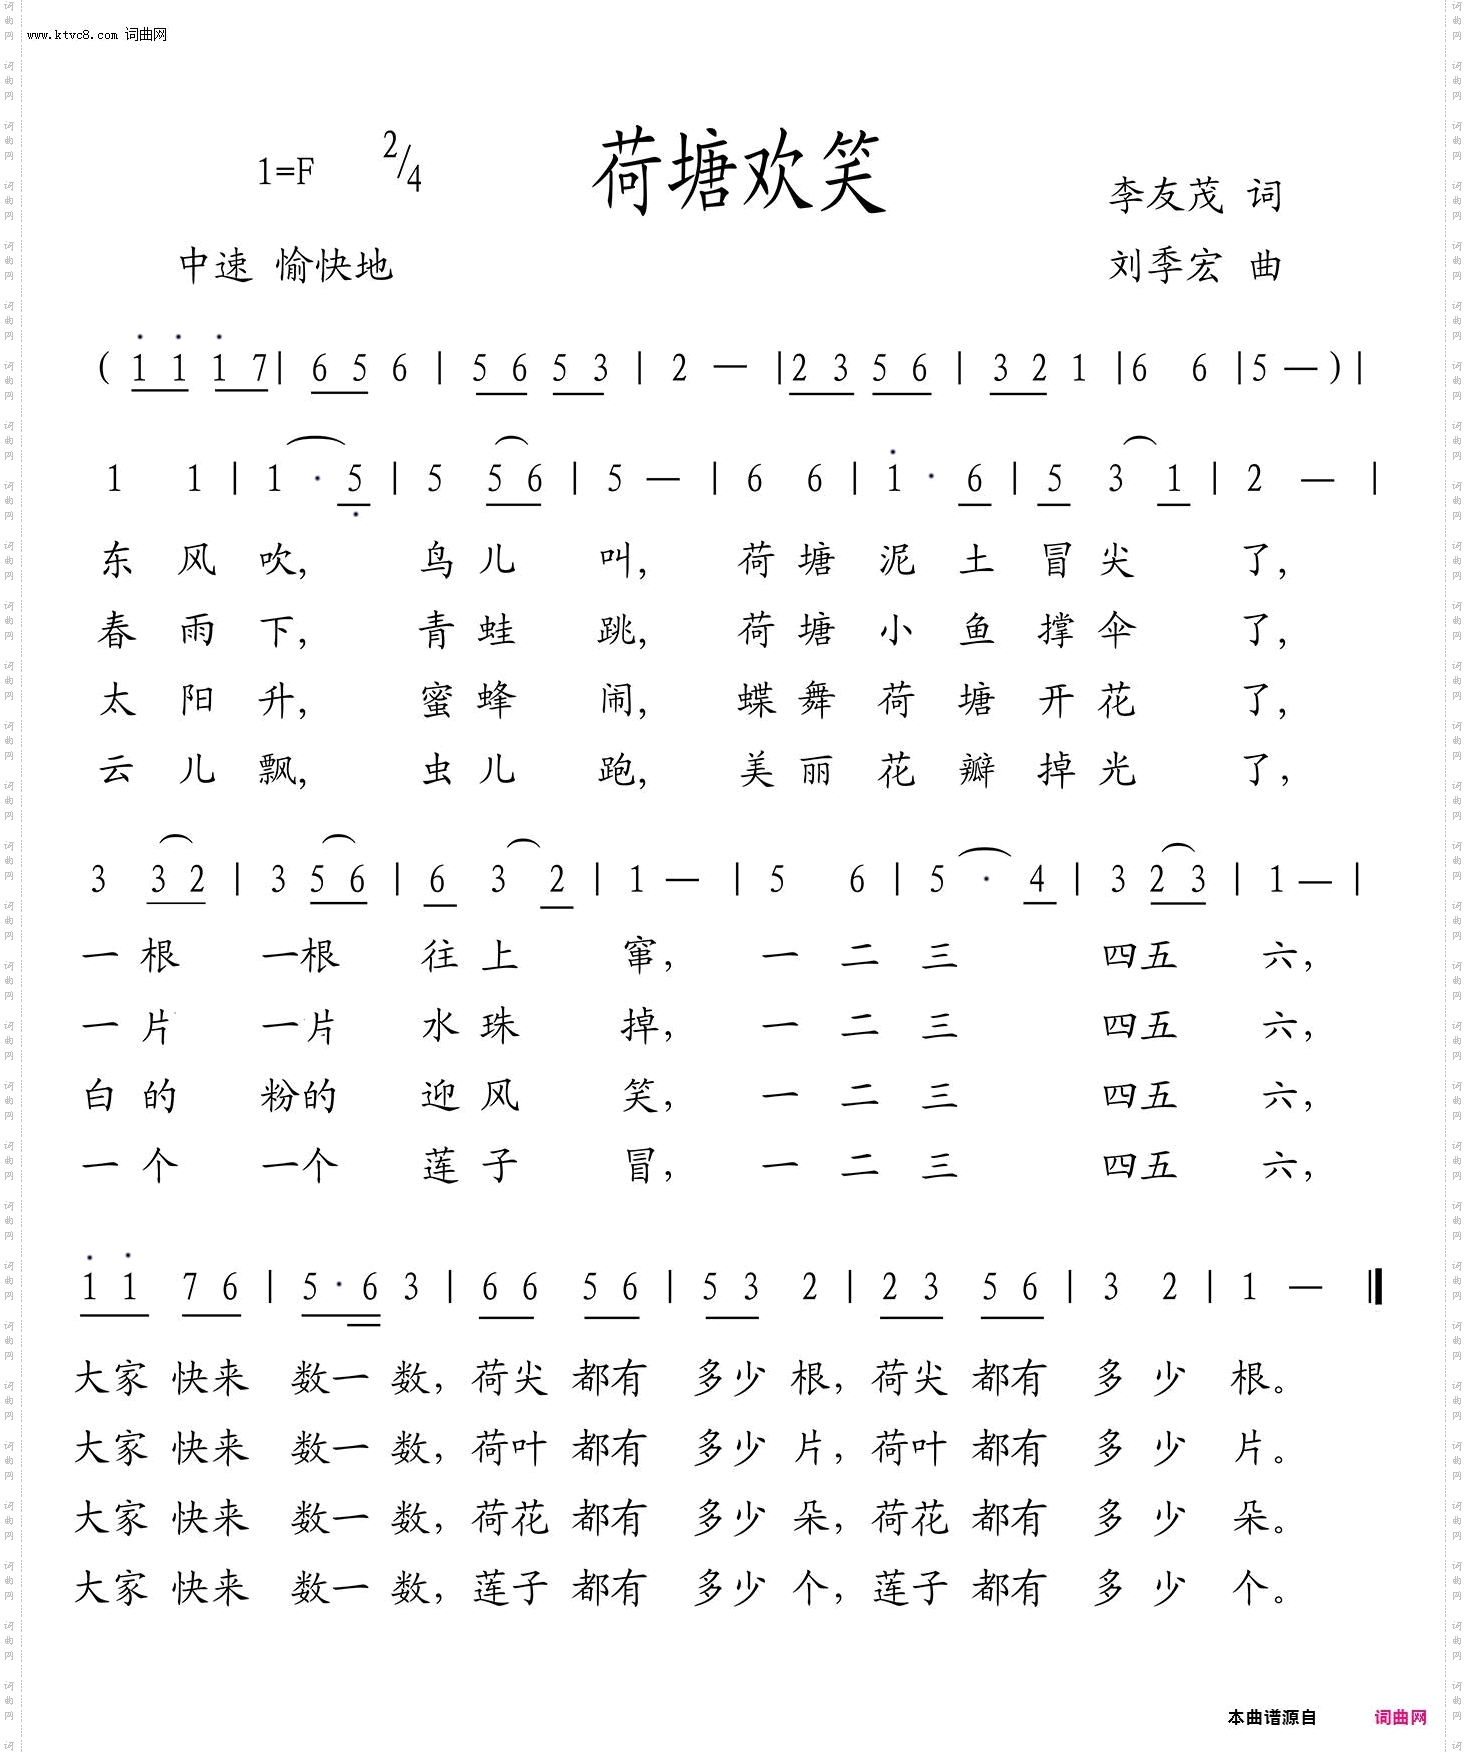 www.ktvc8.com 词曲网
1=F 2/4 荷塘欢笑
李友茂 词
中速 愉快地 刘季宏 曲
( 1 1 1 7 | 6 5 6 | 5 6 5 3 | 2 — | 2 3 5 6 | 3 2 1 | 6 6 | 5 — ) |
1 1 | 1 · 5 | 5 5 6 | 5 — | 6 6 | 1 · 6 | 5 3 1 | 2 — |
东 风 吹, 鸟 儿 叫, 荷 塘 泥 土 冒 尖 了,
春 雨 下, 青 蛙 跳, 荷 塘 小 鱼 撑 伞 了,
太 阳 升, 蜜 蜂 闹, 蝶 舞 荷 塘 开 花 了,
云 儿 飘, 虫 儿 跑, 美 丽 花 瓣 掉 光 了,
3 3 2 | 3 5 6 | 6 3 2 | 1 — | 5 6 | 5 · 4 | 3 2 3 | 1 — |
一 根 一根 往 上 窜, 一 二 三 四五 六,
一 片 一片 水 珠 掉, 一 二 三 四五 六,
白 的 粉的 迎 风 笑, 一 二 三 四五 六,
一 个 一个 莲 子 冒, 一 二 三 四五 六,
1 1 7 6 | 5 · 6 3 | 6 6 5 6 | 5 3 2 | 2 3 5 6 | 3 2 | 1 — ‖
大家 快来 数一 数, 荷尖 都有 多少 根, 荷尖 都有 多 少 根。
大家 快来 数一 数, 荷叶 都有 多少 片, 荷叶 都有 多 少 片。
大家 快来 数一 数, 荷花 都有 多少 朵, 荷花 都有 多 少 朵。
大家 快来 数一 数, 莲子 都有 多少 个, 莲子 都有 多 少 个。
本曲谱源自 词曲网